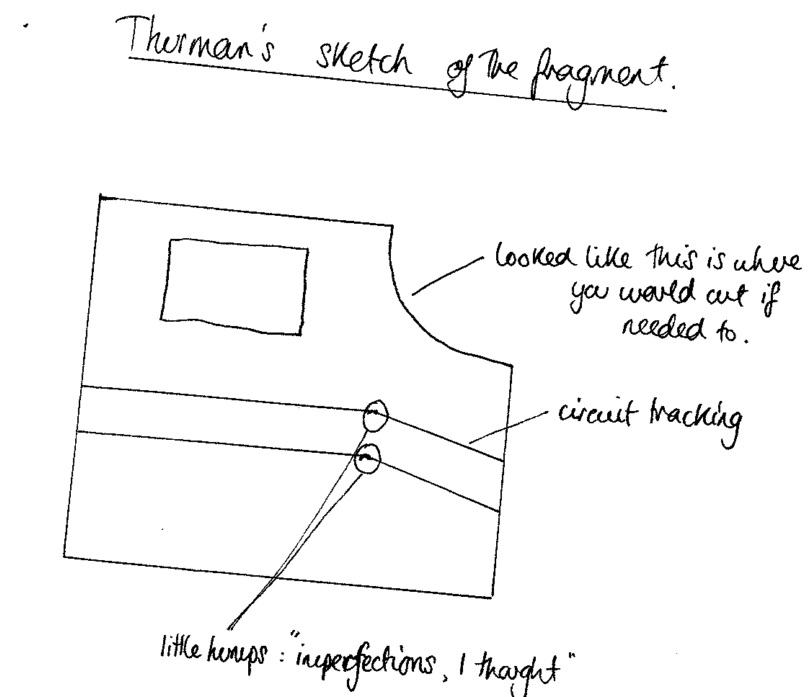 Thurman's sketch of the fragment.
looked like this is where
you would cut if
needed to.
circuit tracking
little humps : "imperfections, I thought"